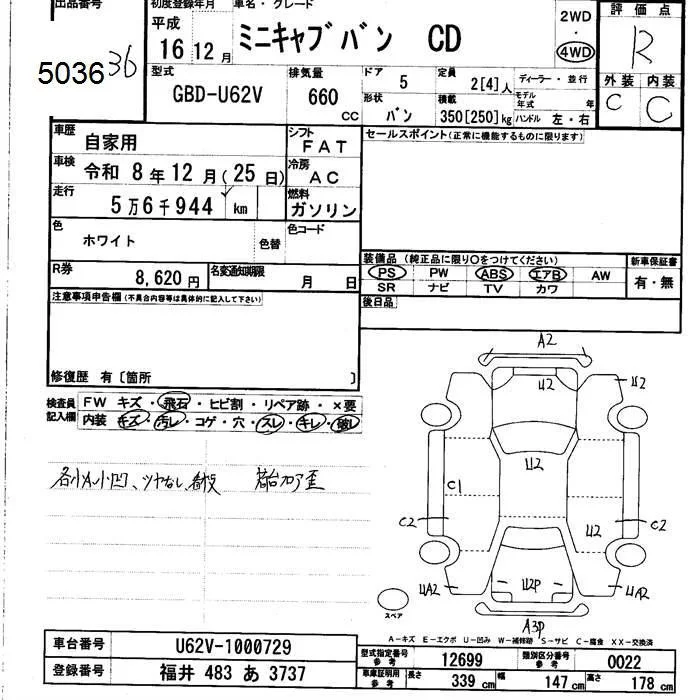 出品番号
初度登録年月
車名・グレード
評価点
平成
16 12月
ミニキャブバン CD
2WD
4WD
R
5036 36
型式
排気量
ドア
5
定員
2[4]人
ディーラー・並行
外装 内装
GBD-U62V
660
CC
形状
バン
積載
350[250]kg
モデル年式 年
ハンドル 左・右
C C
車歴
自家用
シフト
FAT
セールスポイント(正常に機能するものに限ります)
車検
令和 8年12月(25日)
冷房
AC
走行
5万6千944 km
燃料
ガソリン
色
ホワイト
色替
色コード
装備品 (純正品に限り〇をつけてください)
新車保証書
PS PW ABS エアB AW
有・無
SR ナビ TV カワ
R券
8,620円
名変通知期限
月 日
後日品
注意事項申告欄(不具合内容等は具体的に記入して下さい)
修復歴 有〔箇所 〕
検査員記入欄
FW キズ・飛石・ヒビ割・リペア跡・×要
内装 キズ・汚レ・コゲ・穴・スレ・キレ・破レ
各小A小凹、ツヤなし、
A2
U2
U2
U2
C1
C2
U2
C2
UA2
U2P
UA2
スペア
A3P
A-キズ E-エクボ U-凹み W-補修跡 S-サビ C-腐食 XX-交換済
車台番号
U62V-1000729
型式指定番号
参考
12699
類別区分番号
参考
0022
登録番号
福井 483 あ 3737
車庫証明用
参考
長さ
339 cm
幅
147 cm
高さ
178 cm